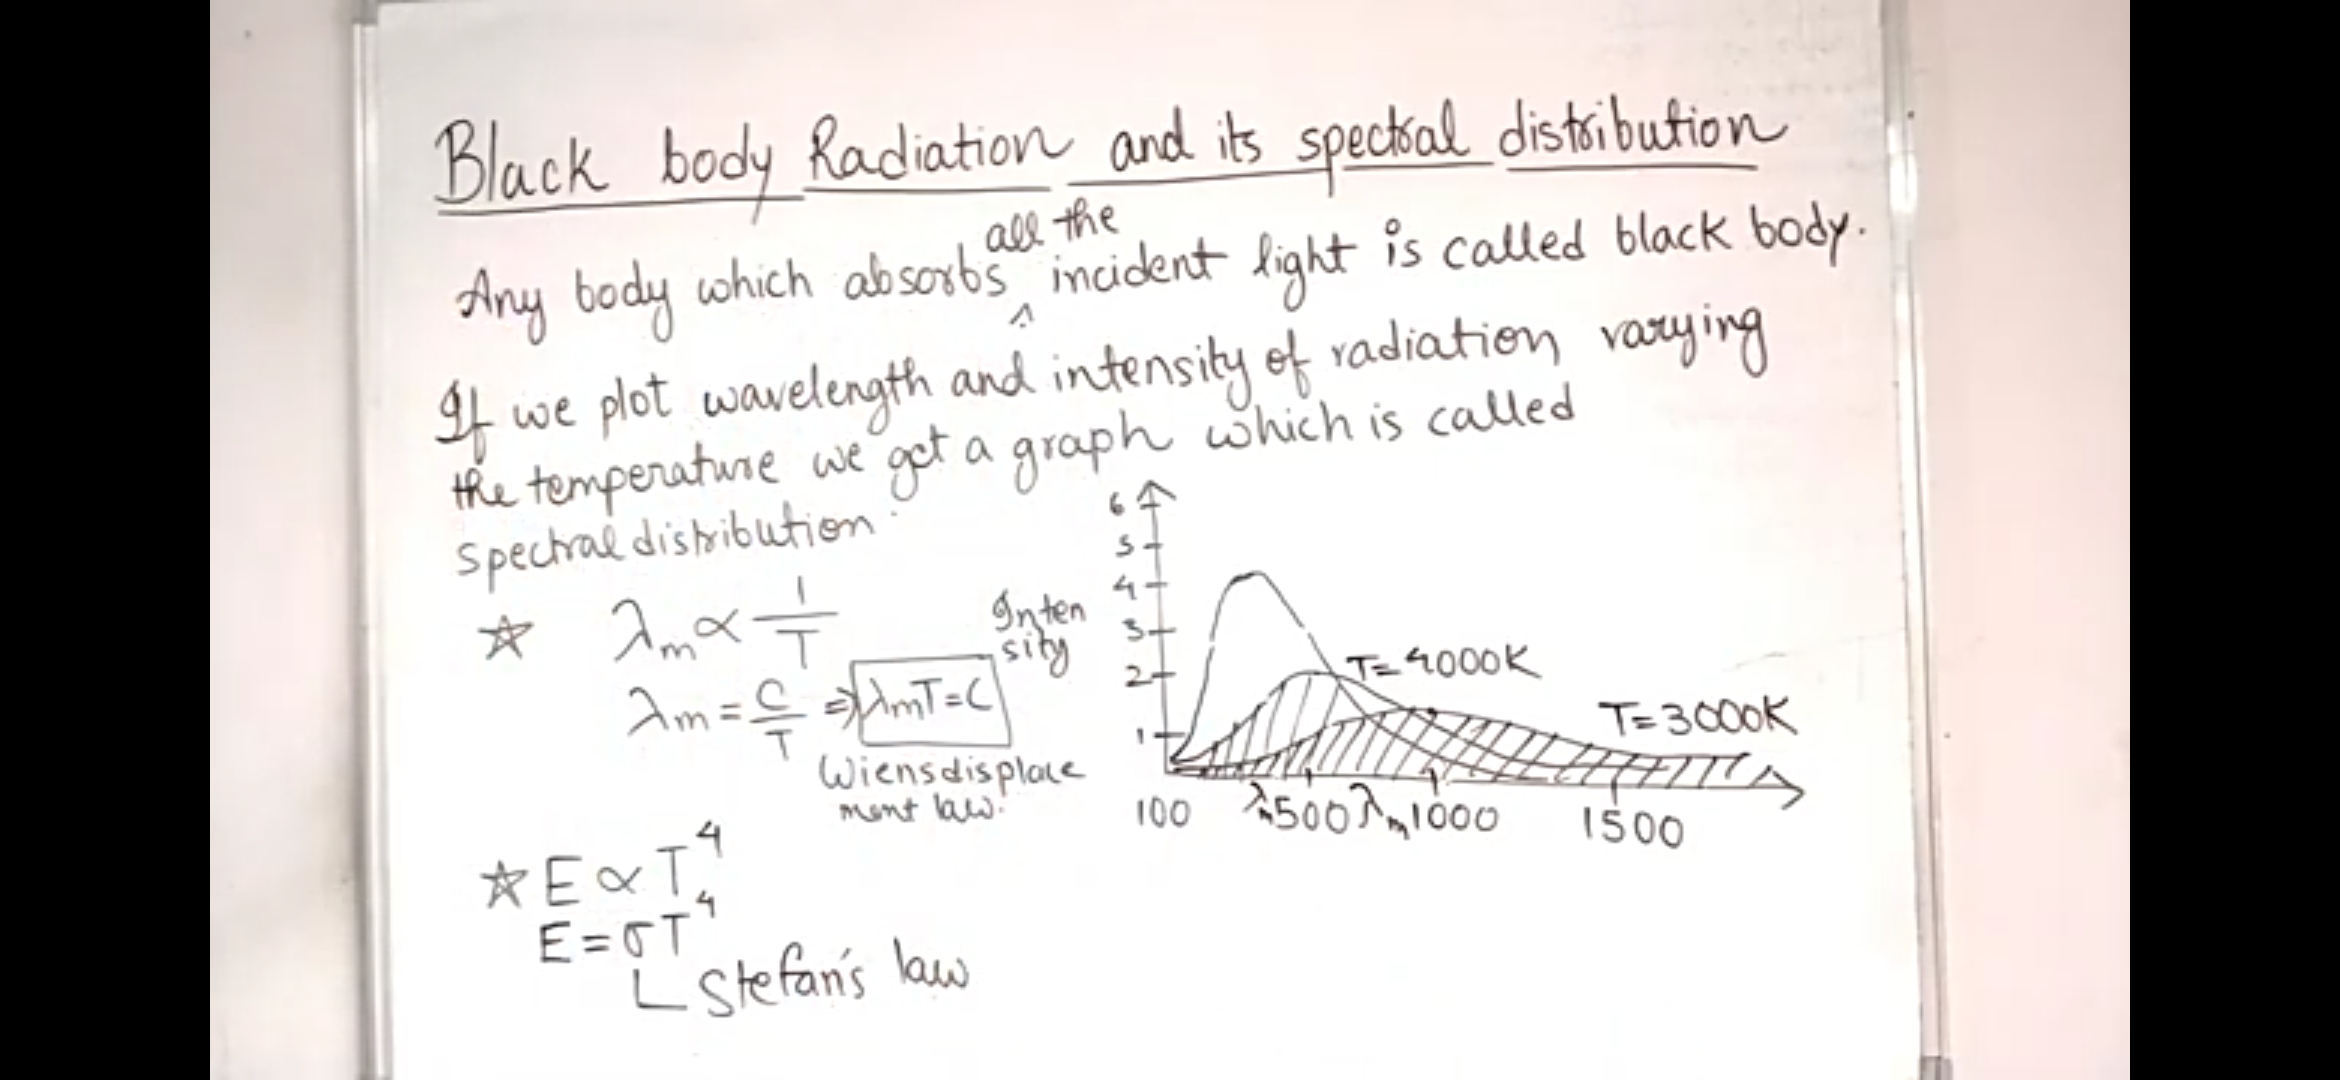 Black body Radiation and its spectral distribution
all the
Any body which absorbs ^ incident light is called black body.
If we plot wavelength and intensity of radiation varying
the temperature we get a graph which is called
spectral distribution.
☆ λm ∝ 1/T
λm = C/T ⇒ λmT=C
Wiensdisplace
ment law.
☆ E ∝ T⁴
E = σT⁴
Stefan's law
Inten
sity
6
5
4
3
2
1
T=4000K
T=3000K
100 λm 500 λm 1000 1500